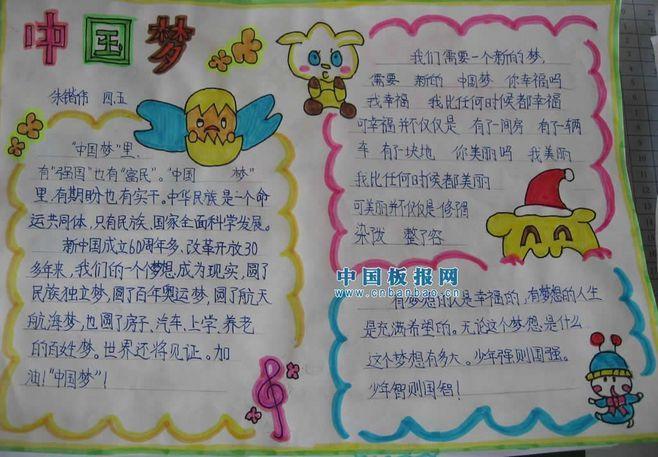 中国梦
朱锴伟 四五
"中国梦"里,
有"强国"也有"富民"。"中国 梦"
里,有期盼也有实干。中华民族是一个命
运共同体,只有民族、国家全面科学发展。
新中国成立60周年多、改革开放30
多年来,我们的一个个梦想成为现实,圆了
民族独立梦,圆了百年奥运梦,圆了航天
航海梦,也圆了房子、汽车、上学、养老
的百姓梦。世界还将见证。加
油!"中国梦"!
我们需要一个新的梦,
需要 新的 中国梦 你幸福吗
我幸福 我比任何时候都幸福
可幸福并不仅仅是 有了一间房 有了一辆
车 有了一块地 你美丽吗 我美丽
我比任何时候都美丽
可美丽并不仅仅是修得
染泼 整了容
中国板报网
www.cnbanbao.cn
有梦想的人是幸福的,有梦想的人生
是充满希望的。无论这个梦想是什么
这个梦想有多大。少年强则国强。
少年智则国智!